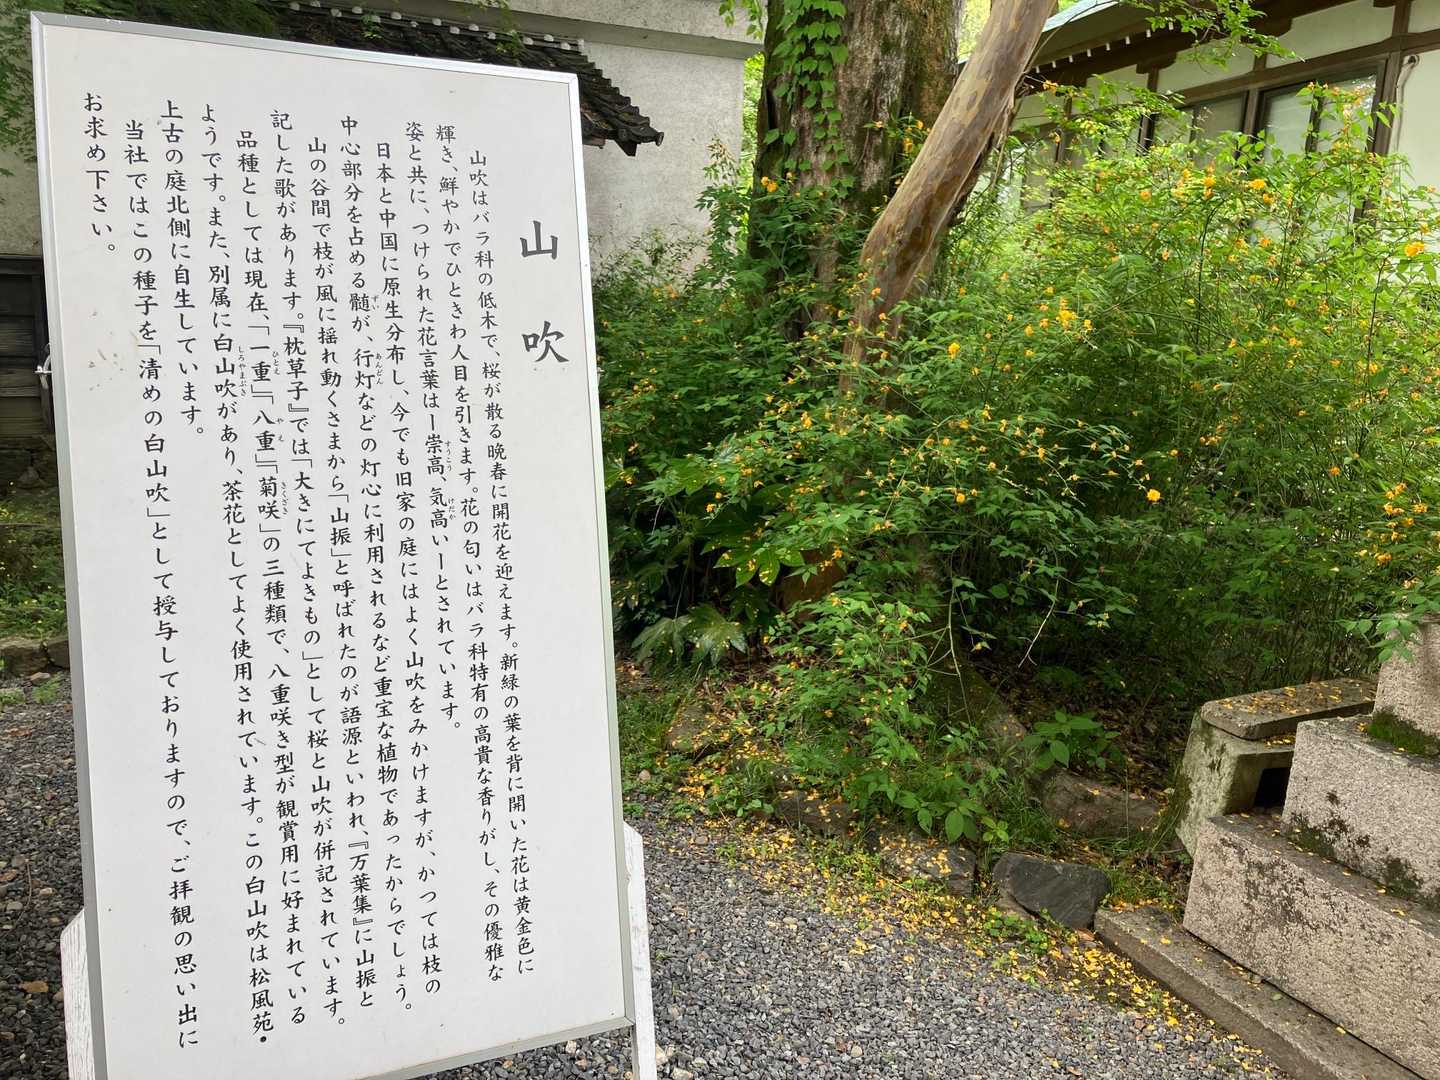 山吹
山吹はバラ科の低木で、桜が散る晩春に開花を迎えます。新緑の葉を背に開いた花は黄金色に
輝き、鮮やかでひときわ人目を引きます。花の匂いはバラ科特有の高貴な香りがし、その優雅な
姿と共に、つけられた花言葉は―崇高、気高い―とされています。
日本と中国に原生分布し、今でも旧家の庭にはよく山吹をみかけますが、かつては枝の
中心部分を占める髄が、行灯などの灯心に利用されるなど重宝な植物であったからでしょう。
山の谷間で枝が風に揺れ動くさまから「山振」と呼ばれたのが語源といわれ、『万葉集』に山振と
記した歌があります。『枕草子』では「大きにてよきもの」として桜と山吹が併記されています。
品種としては現在、「一重」「八重」「菊咲」の三種類で、八重咲き型が観賞用に好まれている
ようです。また、別属に白山吹があり、茶花としてよく使用されています。この白山吹は松風苑・
上古の庭北側に自生しています。
当社ではこの種子を「清めの白山吹」として授与しておりますので、ご拝観の思い出に
お求め下さい。